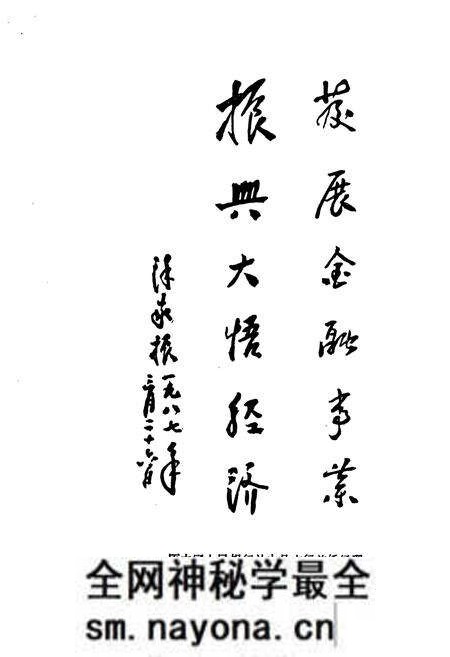 發展金融事業
振興大悟经济
家振 一九八七年
月二十六日
全网神秘学最全
sm.nayona.cn